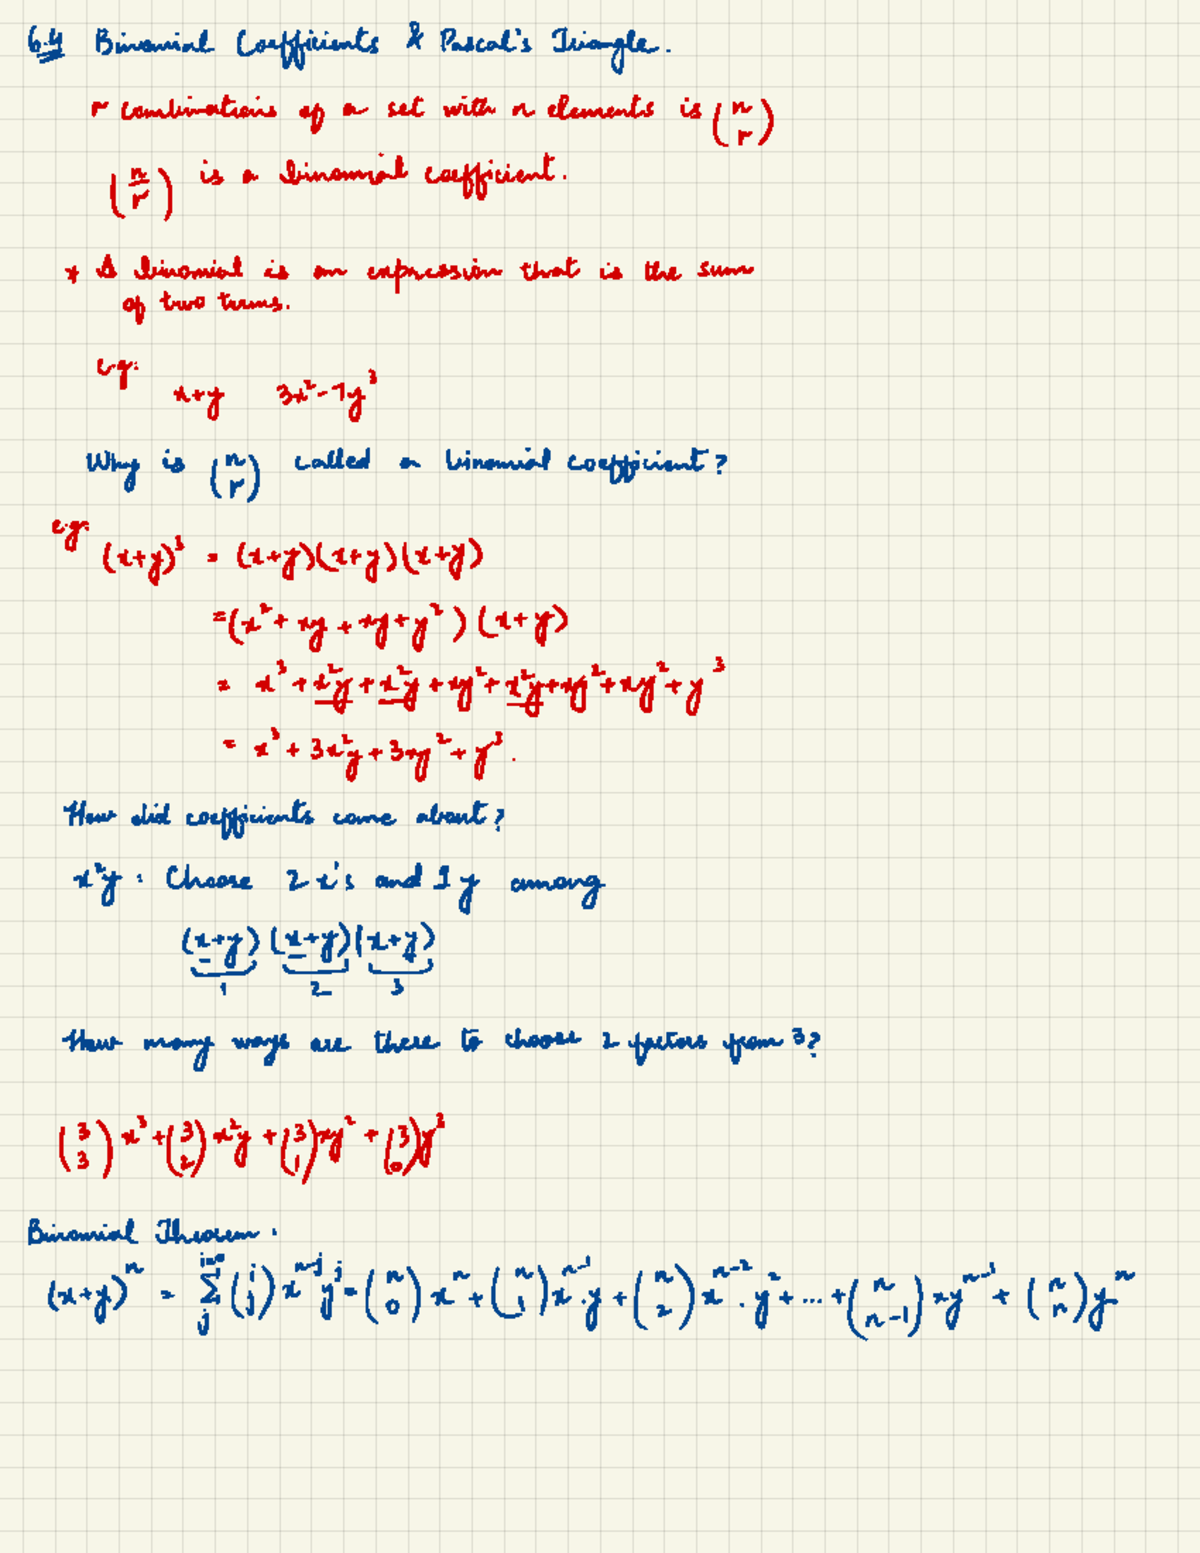 6.4 Binomial Coefficients & Pascal's Triangle.
r combinations of a set with n elements is (n r)
(n/r) is a binomial coefficient.
* A binomial is an expression that is the sum
of two terms.
e.g:
x+y 3x²-7y³
Why is (n r) called a binomial coefficient?
e.g: (x+y)³ = (x+y)(x+y)(x+y)
=(x²+xy+xy+y²)(x+y)
= x³+x²y+x²y+xy²+x²y+xy²+xy²+y³
= x³+3x²y+3xy²+y³.
How did coefficients come about?
x²y: Choose 2 x's and 1 y among
(x+y)(x+y)(x+y)
1 2 3
How many ways are there to choose 2 factors from 3?
(3 3)x³+(3 2)x²y+(3 1)xy²+(3 0)y³
Binomial Theorem.
(x+y)ⁿ = Σ (j) xⁿ⁻ʲyʲ=(n 0)xⁿ+(n 1)xⁿ⁻¹.y+(n 2)xⁿ⁻².y²+...+(n n-1)xyⁿ⁻¹+(n n)yⁿ